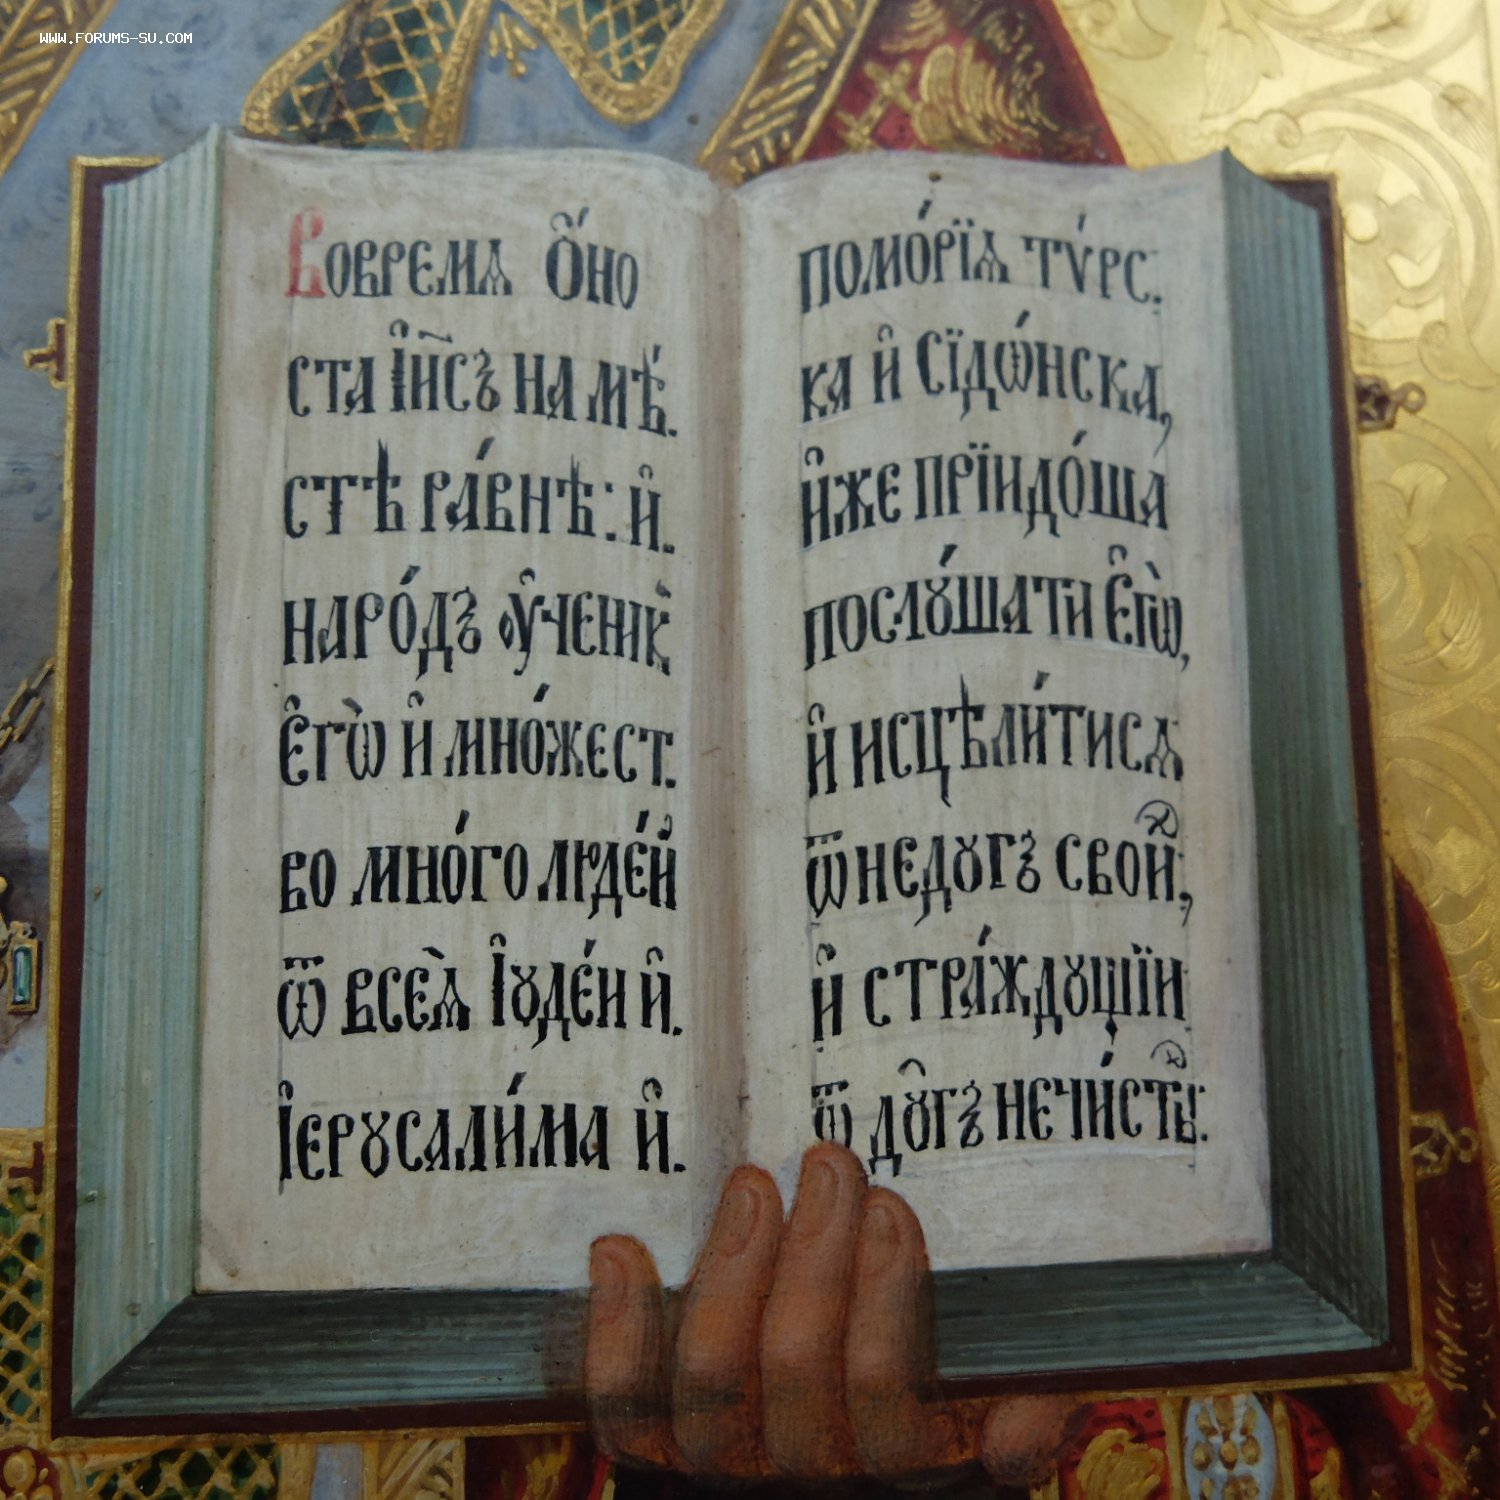 WWW.FORUMS-SU.COM
Вовремѧ Ѻ҆́но
ста І҆и҃съ на мѣ́.
стѣ ра́внѣ: и҆.
наро́дъ ᲂу҆ченик̀
є҆гѡ̀ и҆ мно́жест.
во мно́го люде́й
ѿ всеѧ̀ І҆ꙋде́и и҆.
І҆ерꙋсали́ма и҆.
помо́рїѧ тѵ́рс.
ка и҆ Сїдѡ́нска,
и҆же прїидо́ша
послꙋ́шати є҆гѡ̀,
и҆ исцѣли́тисѧ
ѿ недꙋгъ свои́ⷯ,
и҆ стра́ждꙋщїи
ѿ дꙋ҆̑гъ нечи́стыⷯ: